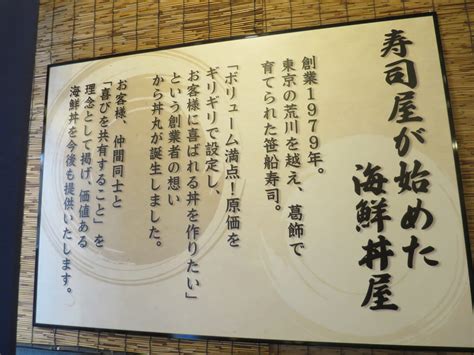 寿司屋が始めた
海鮮丼屋
創業1979年。
東京の荒川を越え、葛飾で
育てられた笹船寿司。
「ボリューム満点！原価を
ギリギリで設定し、
お客様に喜ばれる丼を作りたい」
という創業者の想い
から丼丸が誕生しました。
お客様、仲間同士と
「喜びを共有すること」を
理念として掲げ、価値ある
海鮮丼を今後も提供いたします。